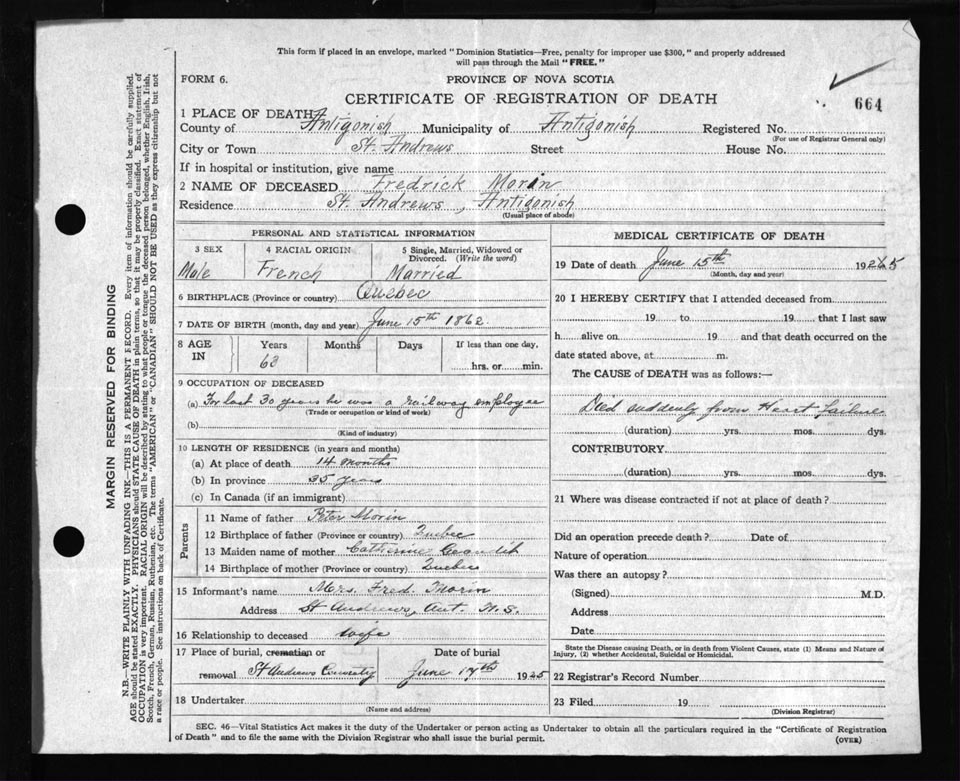 This form if placed in an envelope, marked "Dominion Statistics—Free, penalty for improper use $300," and properly addressed
will pass through the Mail "FREE."
FORM 6.
PROVINCE OF NOVA SCOTIA
CERTIFICATE OF REGISTRATION OF DEATH
664
1 PLACE OF DEATH
County of Antigonish Municipality of Antigonish Registered No.
(For use of Registrar General only)
City or Town St. Andrews Street House No.
If in hospital or institution, give name
2 NAME OF DECEASED Fredrick Morin
Residence St. Andrews, Antigonish
(Usual place of abode)
PERSONAL AND STATISTICAL INFORMATION
3 SEX 4 RACIAL ORIGIN 5 Single, Married, Widowed or
Divorced. (Write the word)
Male French Married
6 BIRTHPLACE (Province or country) Quebec
7 DATE OF BIRTH (month, day and year) June 15th 1862
8 AGE IN Years Months Days If less than one day,
63 hrs. or min.
9 OCCUPATION OF DECEASED
(a) For last 30 years he was a railway employee
(Trade or occupation or kind of work)
(b)
(Kind of industry)
10 LENGTH OF RESIDENCE (in years and months)
(a) At place of death 14 months
(b) In province 35 years
(c) In Canada (if an immigrant)
Parents
11 Name of father Peter Morin
12 Birthplace of father (Province or country) Quebec
13 Maiden name of mother Catherine
14 Birthplace of mother (Province or country) Quebec
15 Informant's name Mrs. Fred. Morin
Address St Andrews, Ant. N.S.
16 Relationship to deceased wife
17 Place of burial, cremation or Date of burial
removal St Andrews June 17th 1925
18 Undertaker
(Name and address)
MEDICAL CERTIFICATE OF DEATH
19 Date of death June 15th 1925
(Month, day and year)
20 I HEREBY CERTIFY that I attended deceased from
19 to 19 that I last saw
h alive on 19 and that death occurred on the
date stated above, at m.
The CAUSE of DEATH was as follows:—
Died suddenly from Heart failure
(duration) yrs. mos. dys.
CONTRIBUTORY
(duration) yrs. mos. dys.
21 Where was disease contracted if not at place of death?
Did an operation precede death? Date of
Nature of operation
Was there an autopsy?
(Signed) M.D.
Address
Date
State the Disease causing Death, or in death from Violent Causes, state (1) Means and Nature of
Injury, (2) whether Accidental, Suicidal or Homicidal.
22 Registrar's Record Number
23 Filed 19
(Division Registrar)
SEC. 46—Vital Statistics Act makes it the duty of the Undertaker or person acting as Undertaker to obtain all the particulars required in the "Certificate of Registration
of Death" and to file the same with the Division Registrar who shall issue the burial permit.
(OVER)
MARGIN RESERVED FOR BINDING
N.B.—WRITE PLAINLY WITH UNFADING INK—THIS IS A PERMANENT RECORD. Every item of information should be carefully supplied.
AGE should be stated EXACTLY. PHYSICIANS should STATE CAUSE OF DEATH in plain terms, so that it may be properly classified. Exact statement of
OCCUPATION is very important. RACIAL ORIGIN will be described by stating to what people or tongue the deceased person belonged, whether English, Irish,
Scotch, French, German, Russian, Ruthenian, etc. The terms "AMERICAN" or "CANADIAN" SHOULD NOT BE USED as they express citizenship but not
a race or people. See instructions on back of Certificate.